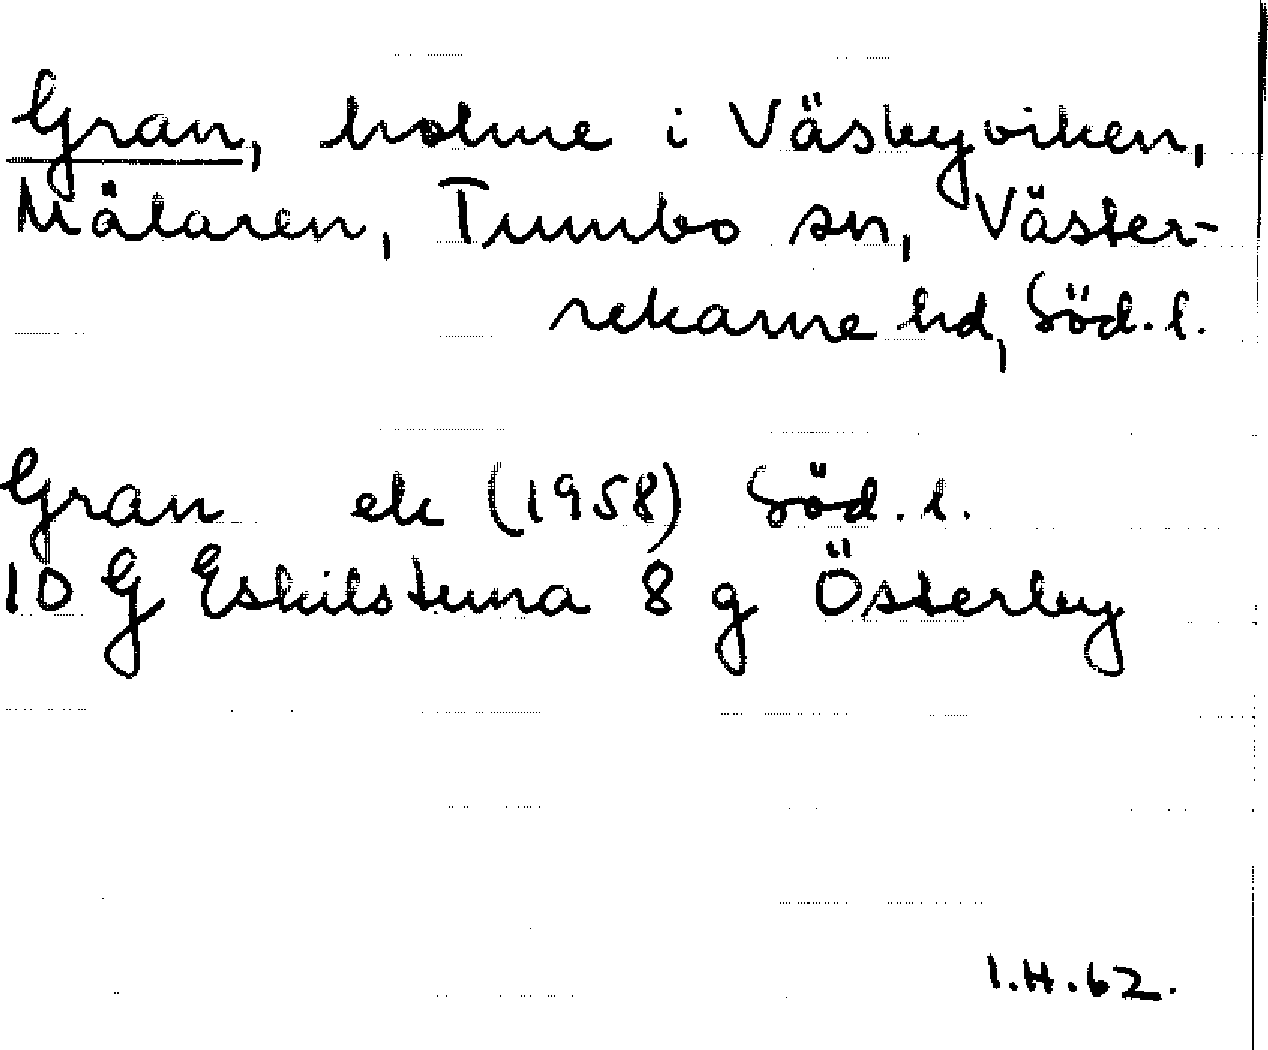 Gran, holme i Väsbyviken,
Mälaren, Tumbo sn, Väster-
rekarne hd, Söd. l.
Gran ek (1958) Söd. l.
10 G Eskilstuna 8 g Österby
I.H.62.